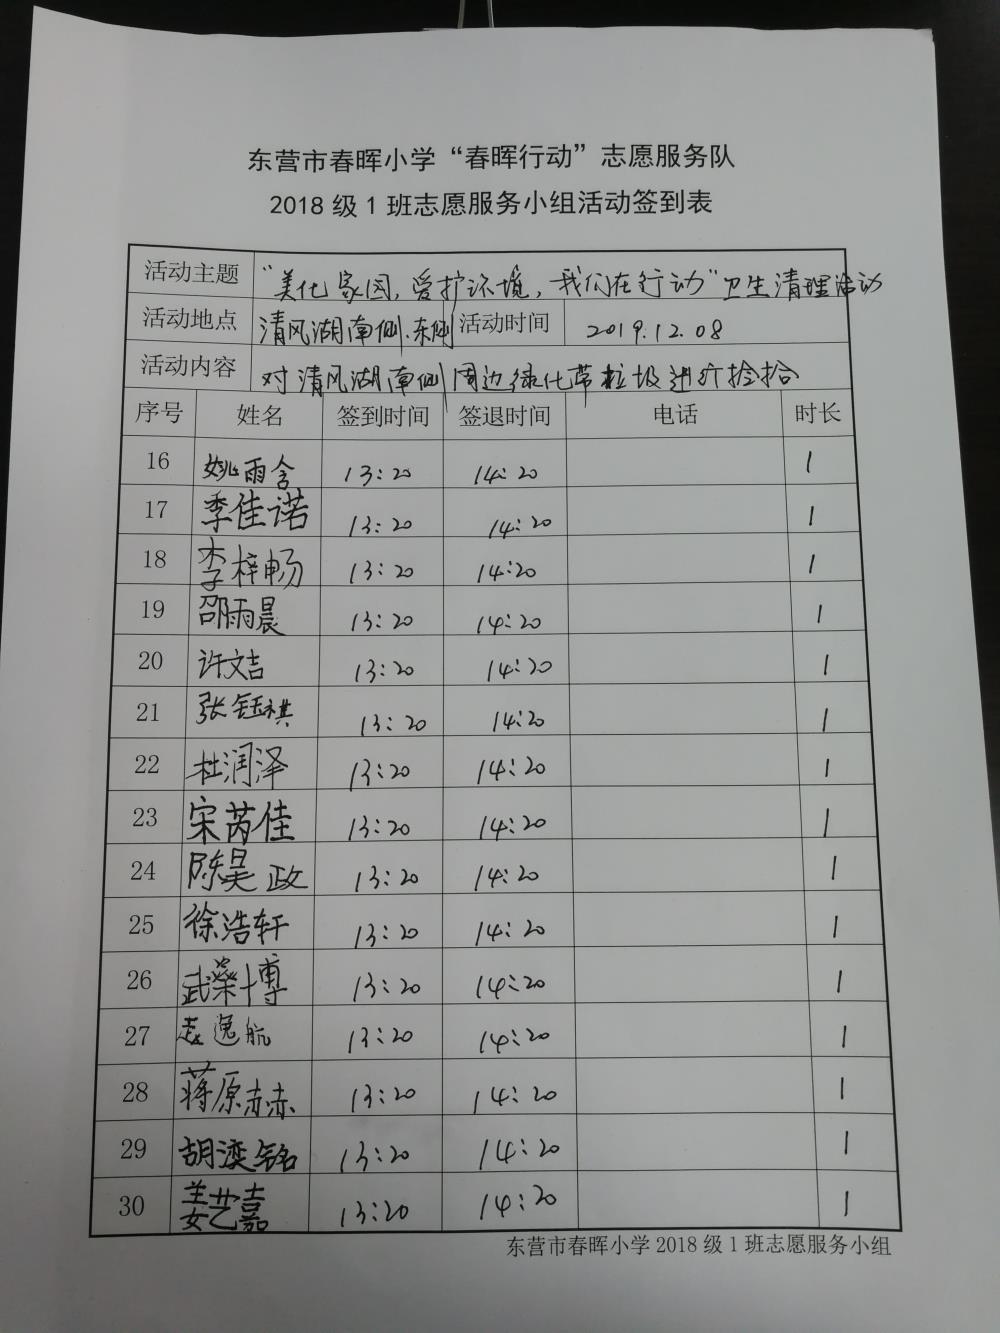 东营市春晖小学“春晖行动”志愿服务队
2018 级 1 班志愿服务小组活动签到表
活动主题 “美化家园,爱护环境,我们在行动”卫生清理活动
活动地点 清风湖南侧、东侧 活动时间 2019.12.08
活动内容 对清风湖南侧周边绿化带垃圾进行捡拾
序号 姓名 签到时间 签退时间 电话 时长
16 姚雨含 13:20 14:20 1
17 季佳诺 13:20 14:20 1
18 李梓畅 13:20 14:20 1
19 邵雨晨 13:20 14:20 1
20 许文吉 13:20 14:20 1
21 张钰祺 13:20 14:20 1
22 杜润泽 13:20 14:20 1
23 宋芮佳 13:20 14:20 1
24 陈昊政 13:20 14:20 1
25 徐浩轩 13:20 14:20 1
26 武荣博 13:20 14:20 1
27 逸航 13:20 14:20 1
28 蒋原赫 13:20 14:20 1
29 胡滢铭 13:20 14:20 1
30 姜艺嘉 13:20 14:20 1
东营市春晖小学 2018 级 1 班志愿服务小组